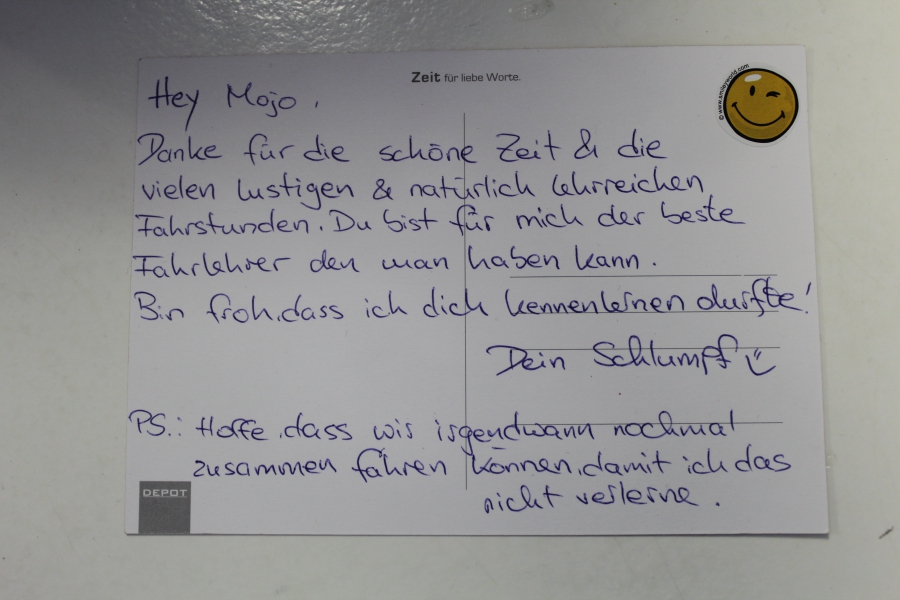 Zeit für liebe Worte.
© www.smileyworld.com
Hey Mojo,
Danke für die schöne Zeit & die
vielen lustigen & natürlich lehrreichen
Fahrstunden. Du bist für mich der beste
Fahrlehrer den man haben kann.
Bin froh, dass ich dich kennenlernen durfte!
Dein Schlumpf
PS.: Hoffe, dass wir irgendwann nochmal
zusammen fahren können, damit ich das
nicht verlerne.
DEPOT